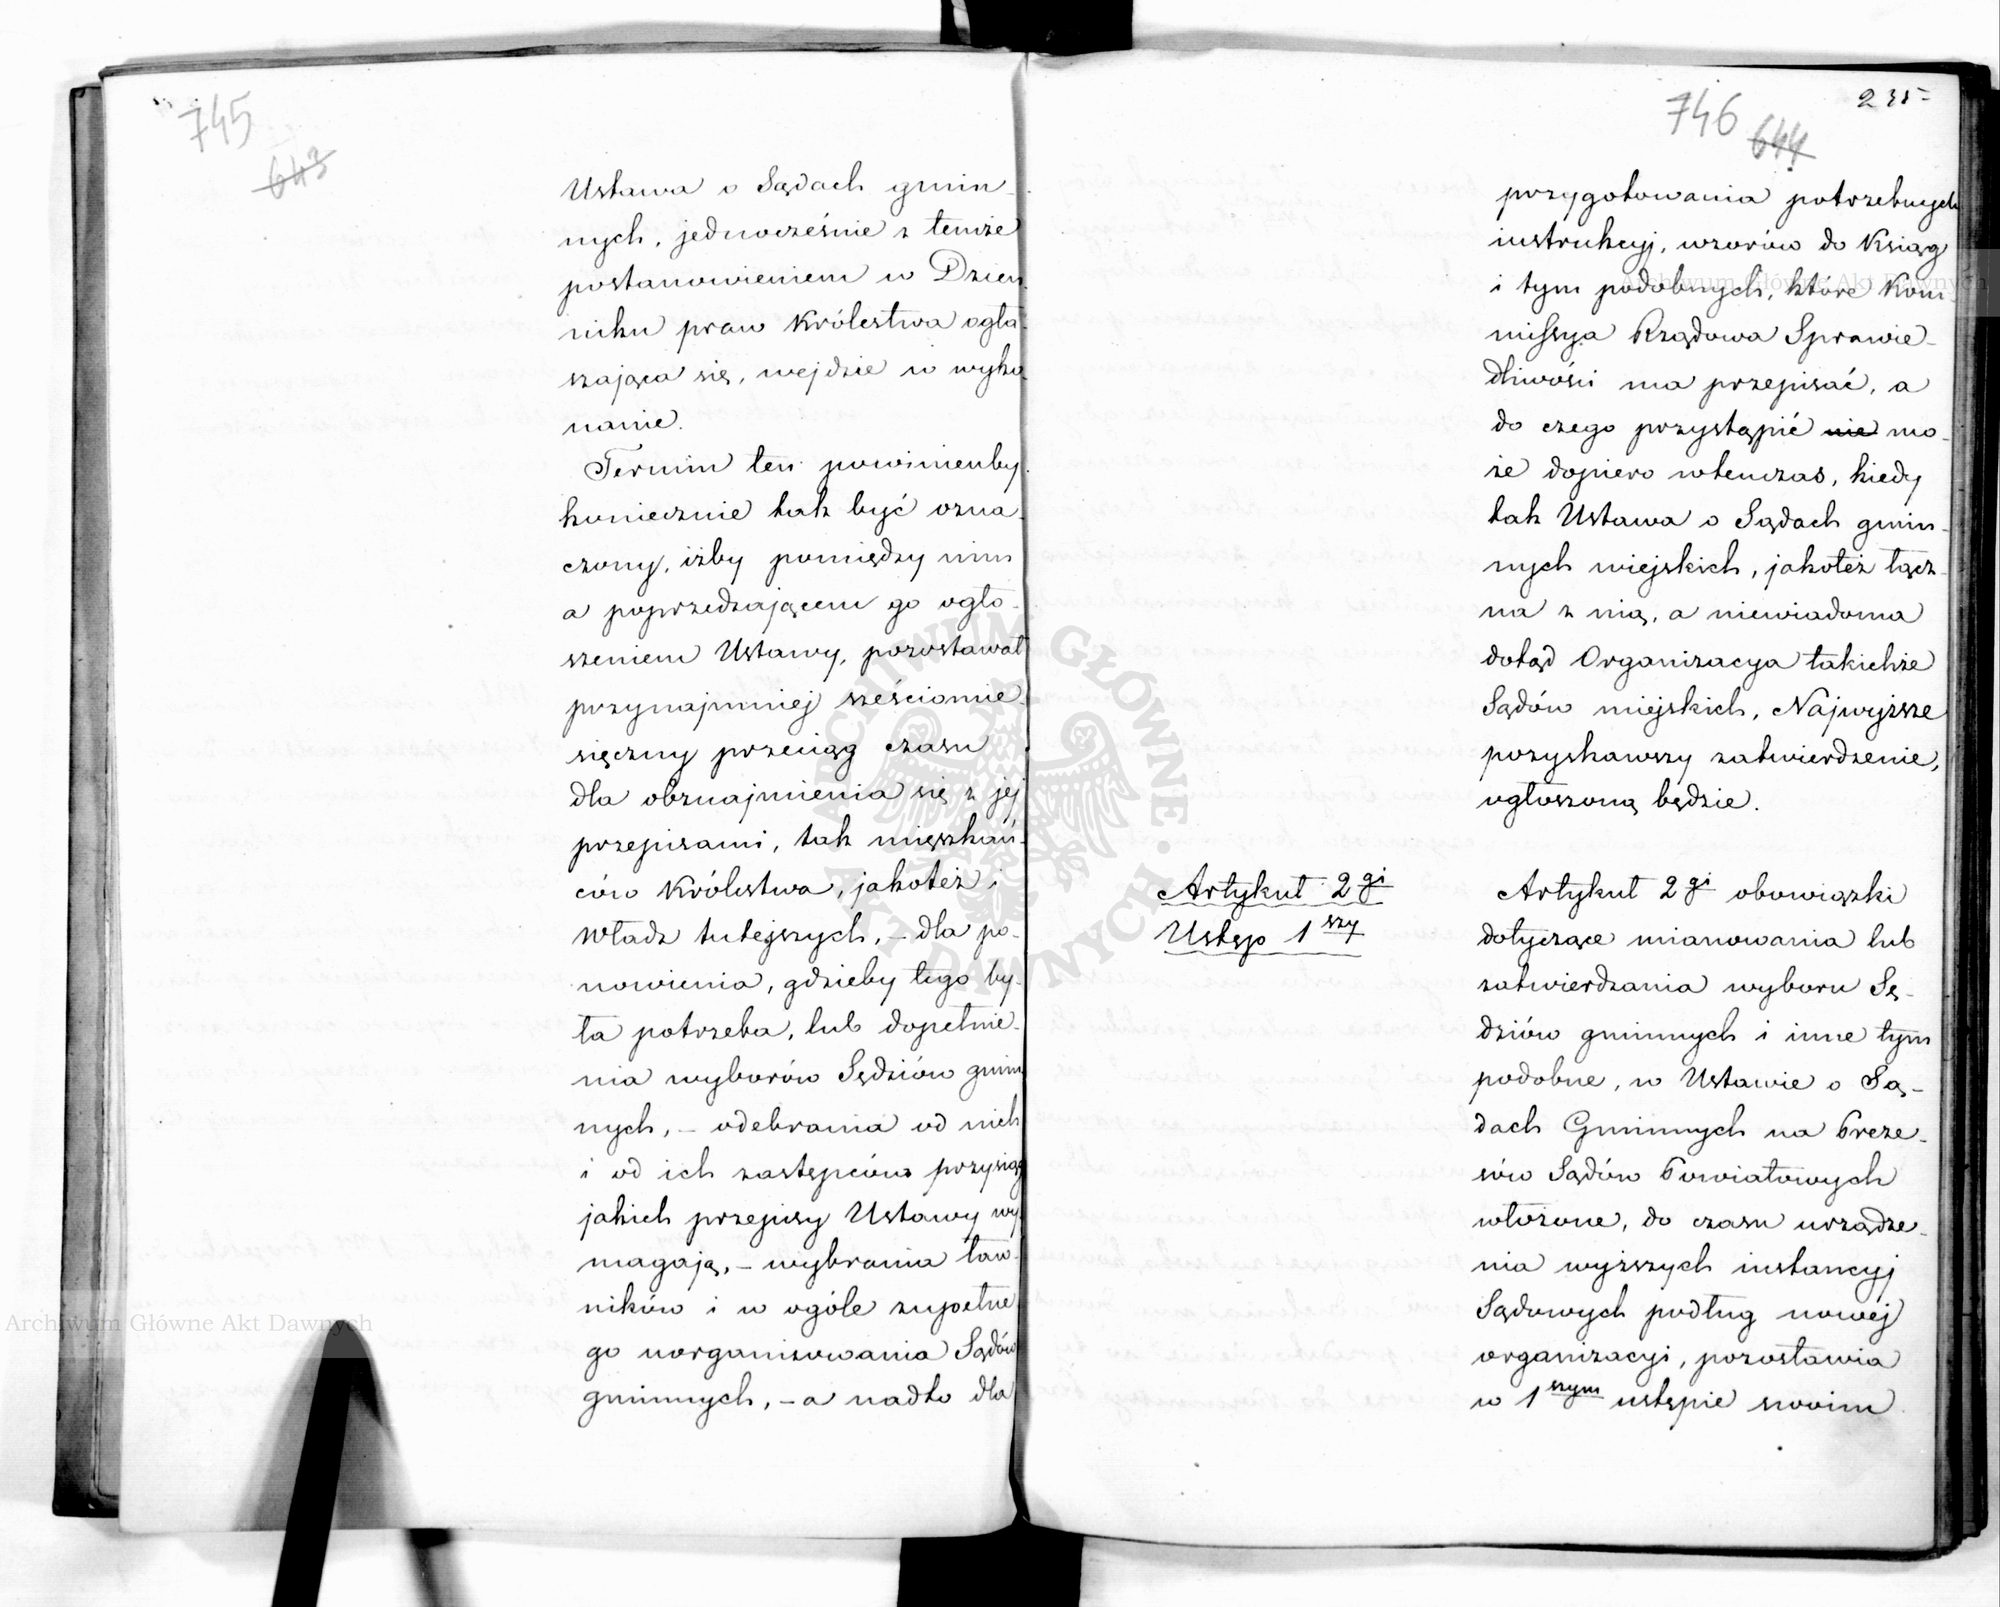 745
643
Ustawa o Sądach gmin-
nych, jednocześnie z temże
postanowieniem w Dzien-
niku praw Królestwa ogła-
szająca się, wejdzie w wyko-
nanie.
Termin ten powinienby
koniecznie tak być ozna-
czony, iżby pomiędzy nim
a poprzedzającem go ogło-
szeniem Ustawy, pozostawał
przynajmniej sześciomie-
sięczny przeciąg czasu
dla obznajmienia się z jej
przepisami, tak mięszkań-
ców Królestwa, jakoteż i
Władz tutejszych, – dla po-
nowienia, gdzieby tego by-
ła potrzeba, lub dopełnie-
nia wyborów Sędziów gmin
nych, – odebrania od nich
i od ich zastępców przysiąg
jakich przepisy Ustawy wy-
magają, – wybrania ław-
ników i w ogóle zupełne-
go uorganizowania Sądów
gminnych, – a nadto dla
746
644
235
przygotowania potrzebnych
instrukcyj, wzorów do Ksiąg
i tym podobnych, które Kom-
missya Rządowa Sprawie-
dliwości ma przepisać, a
do czego przystąpić nie mo-
że dopiero wtenczas, kiedy
tak Ustawa o Sądach gmin-
nych wiejskich, jakoteż łącz-
na z nią, a niewiadoma
dotąd Organizacya takichże
Sądów miejskich, Najwyższe
pozyskawszy zatwierdzenie,
ogłoszoną będzie.
Artykuł 2gi
Ustęp 1szy
Artykuł 2gi obowiązki
dotyczące mianowania lub
zatwierdzania wyboru Sę-
dziów gminnych i inne tym
podobne, w Ustawie o Są-
dach Gminnych na Preze-
sów Sądów Powiatowych
włożone, do czasu urządze-
nia wyższych instancyj
Sądowych podług nowej
organizacyi, pozostawia
w 1szym ustępie swoim
Archiwum Główne Akt Dawnych
Archiwum Główne Akt Dawnych
ARCHIWUM GŁÓWNE · AKT DAWNYCH ·